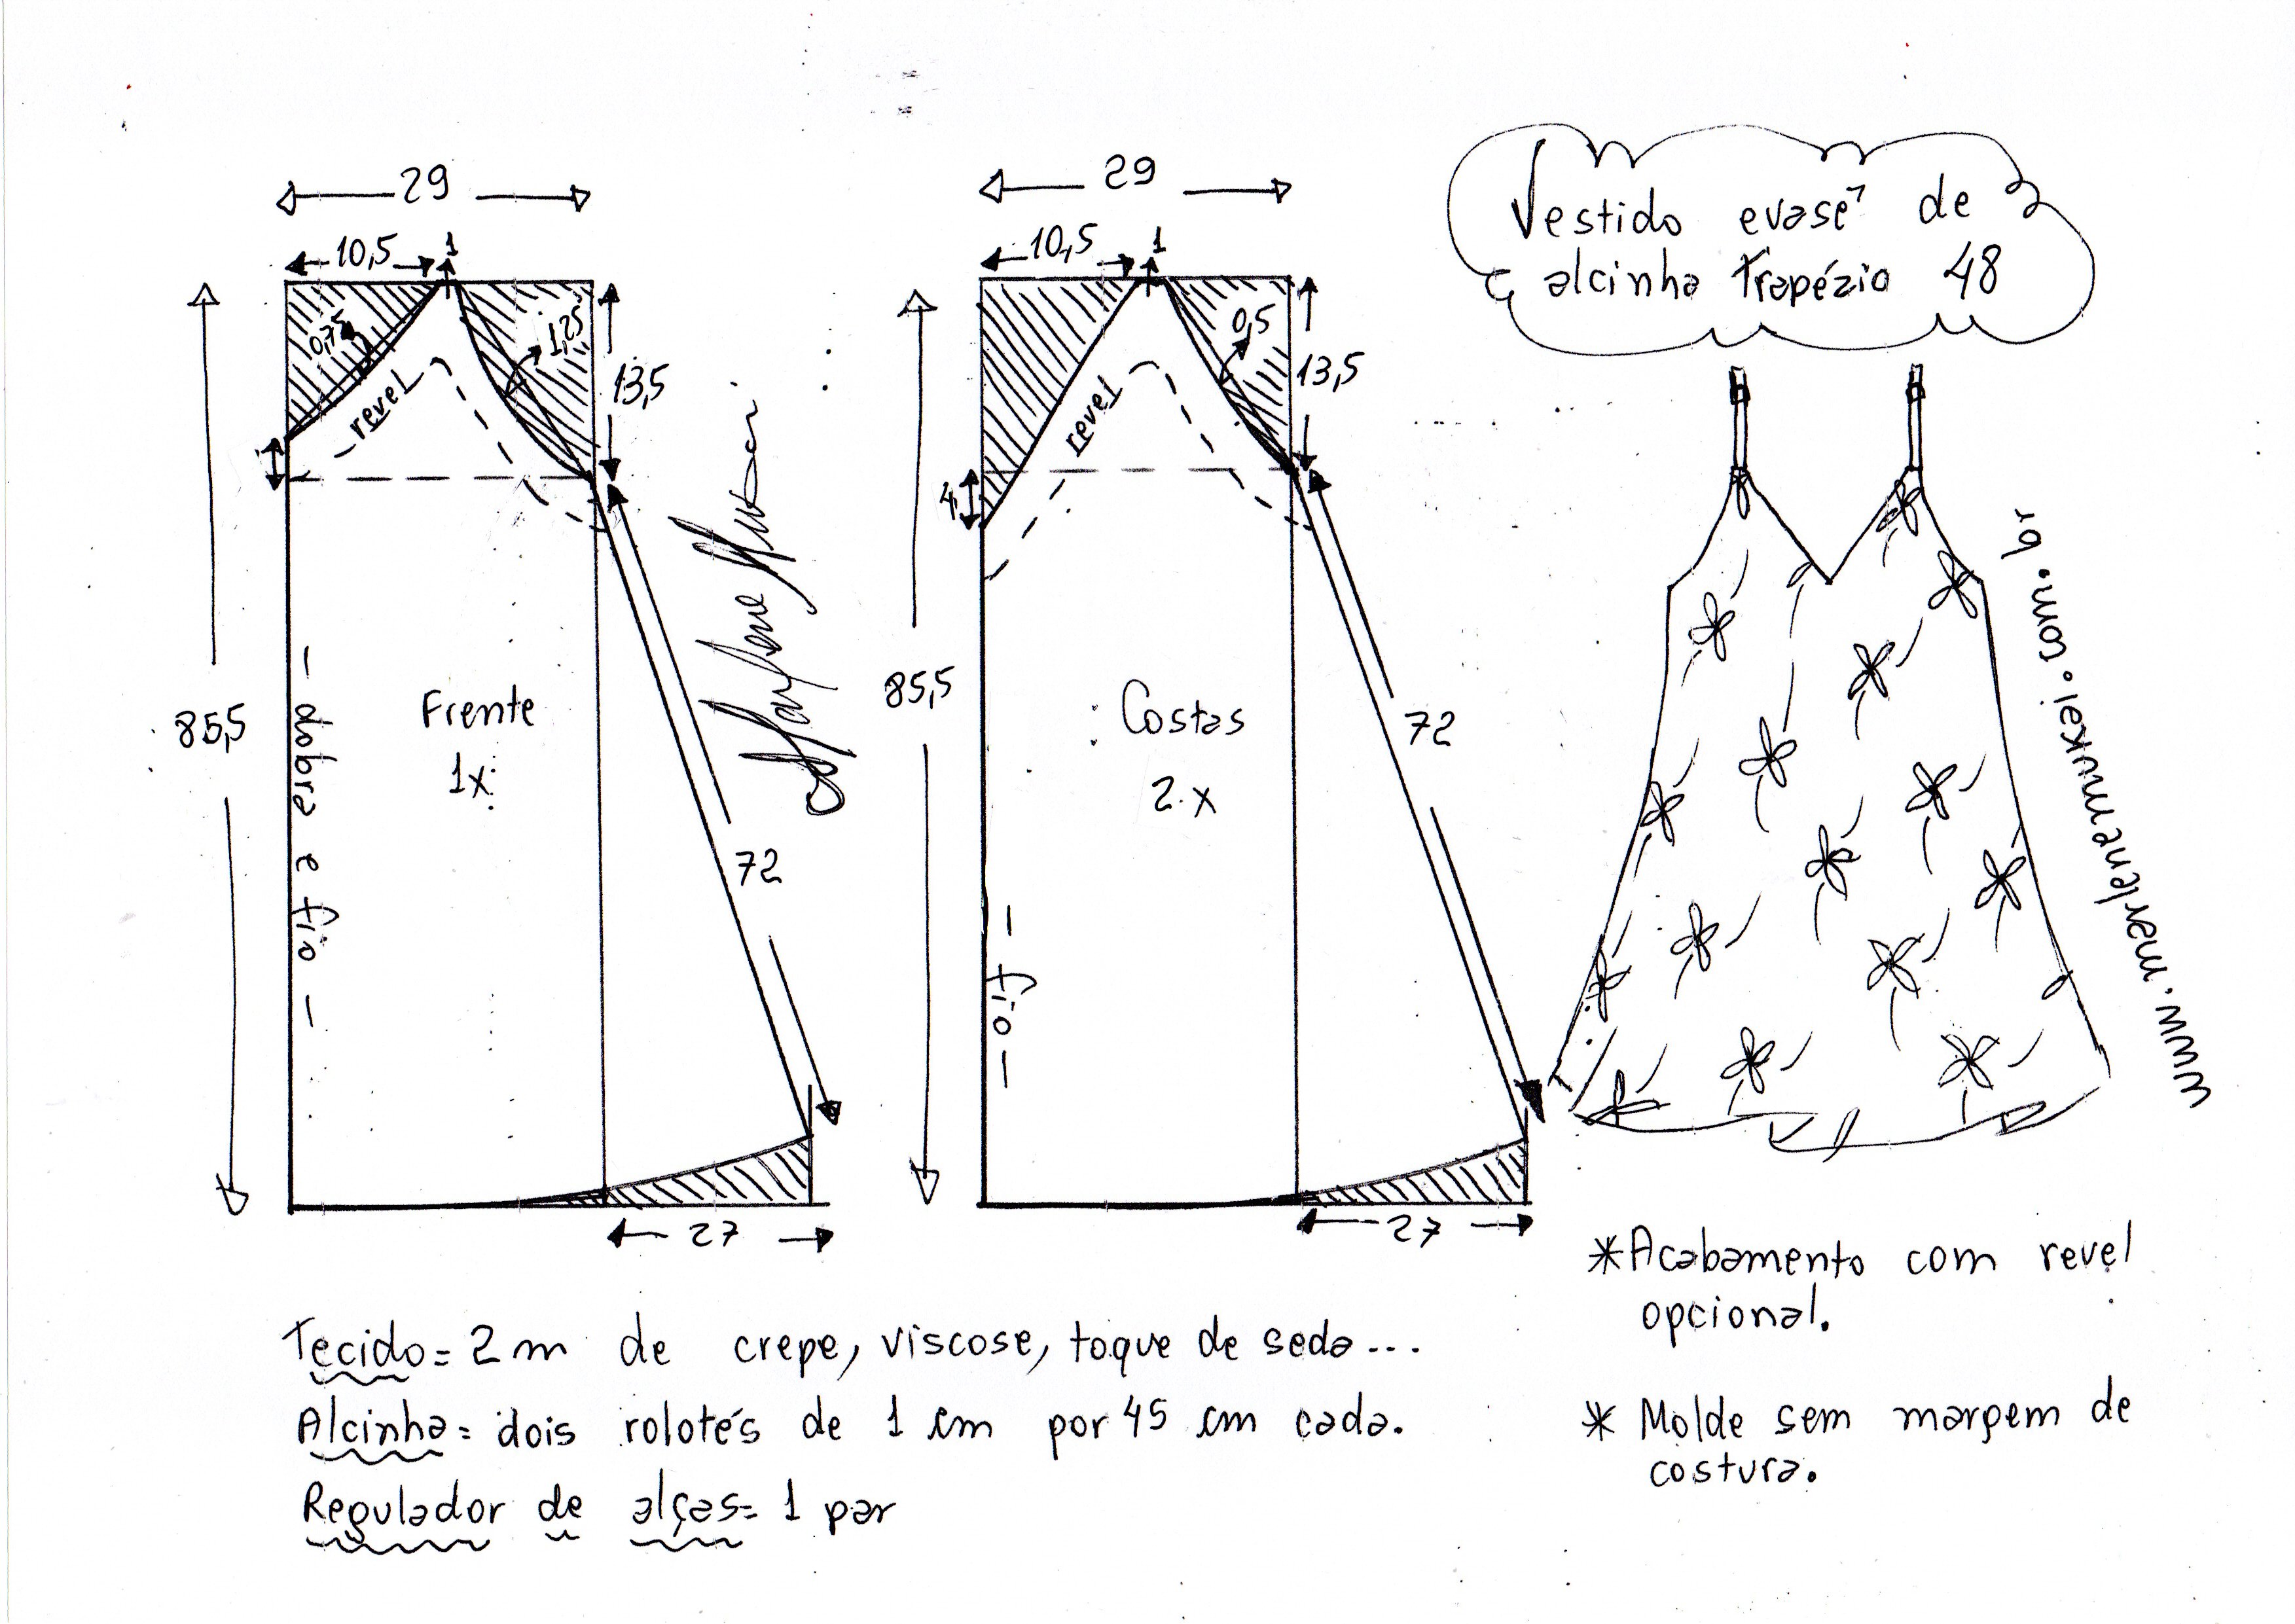 Vestido evasê de
alcinha trapézio 48
29
10,5
1
0,75
1,25
13,5
revel
85,5
Frente
1x
- dobra e fio -
72
27
29
10,5
1
0,5
13,5
revel
4
85,5
Costas
2x
- fio -
72
27
www.marlenemukai.com.br
*Acabamento com revel
opcional.
* Molde sem margem de
costura.
Tecido= 2 m de crepe, viscose, toque de seda...
Alcinha= dois rolotés de 1 cm por 45 cm cada.
Regulador de alças= 1 par